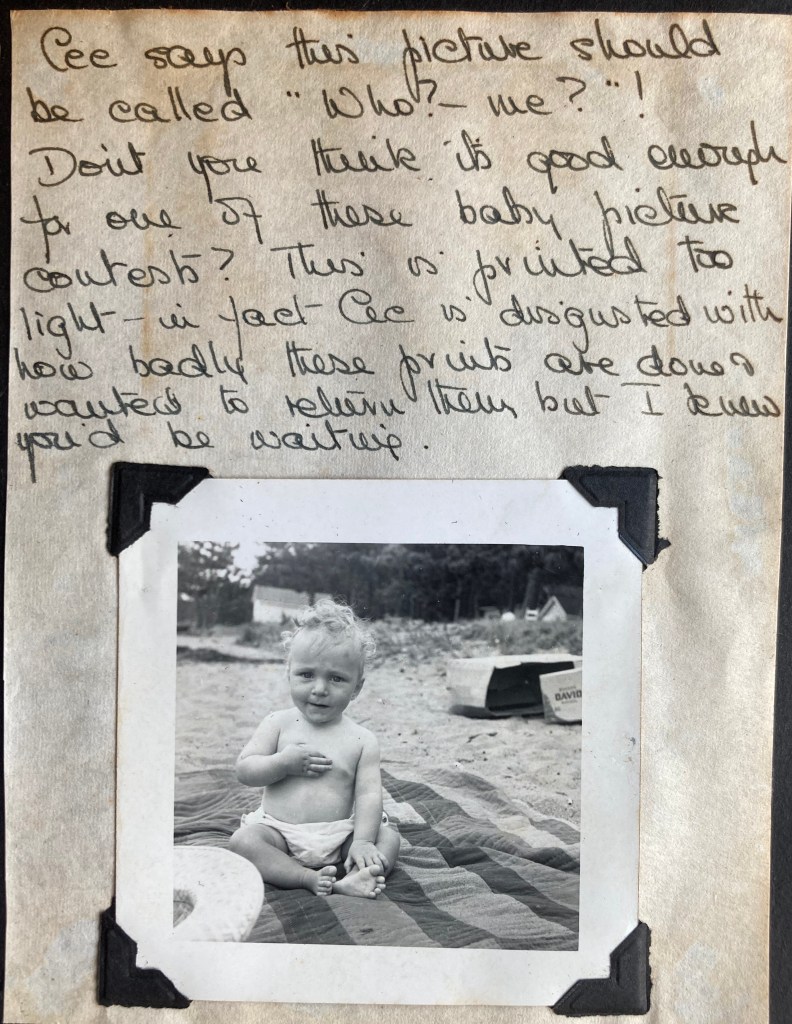 Cec says this picture should
be called "Who? - me?"!
Don't you think it's good enough
for one of these baby picture
contests? This is printed too
light - in fact Cec is disgusted with
how badly these prints are done &
wanted to return them but I knew
you'd be waiting.
DAVID